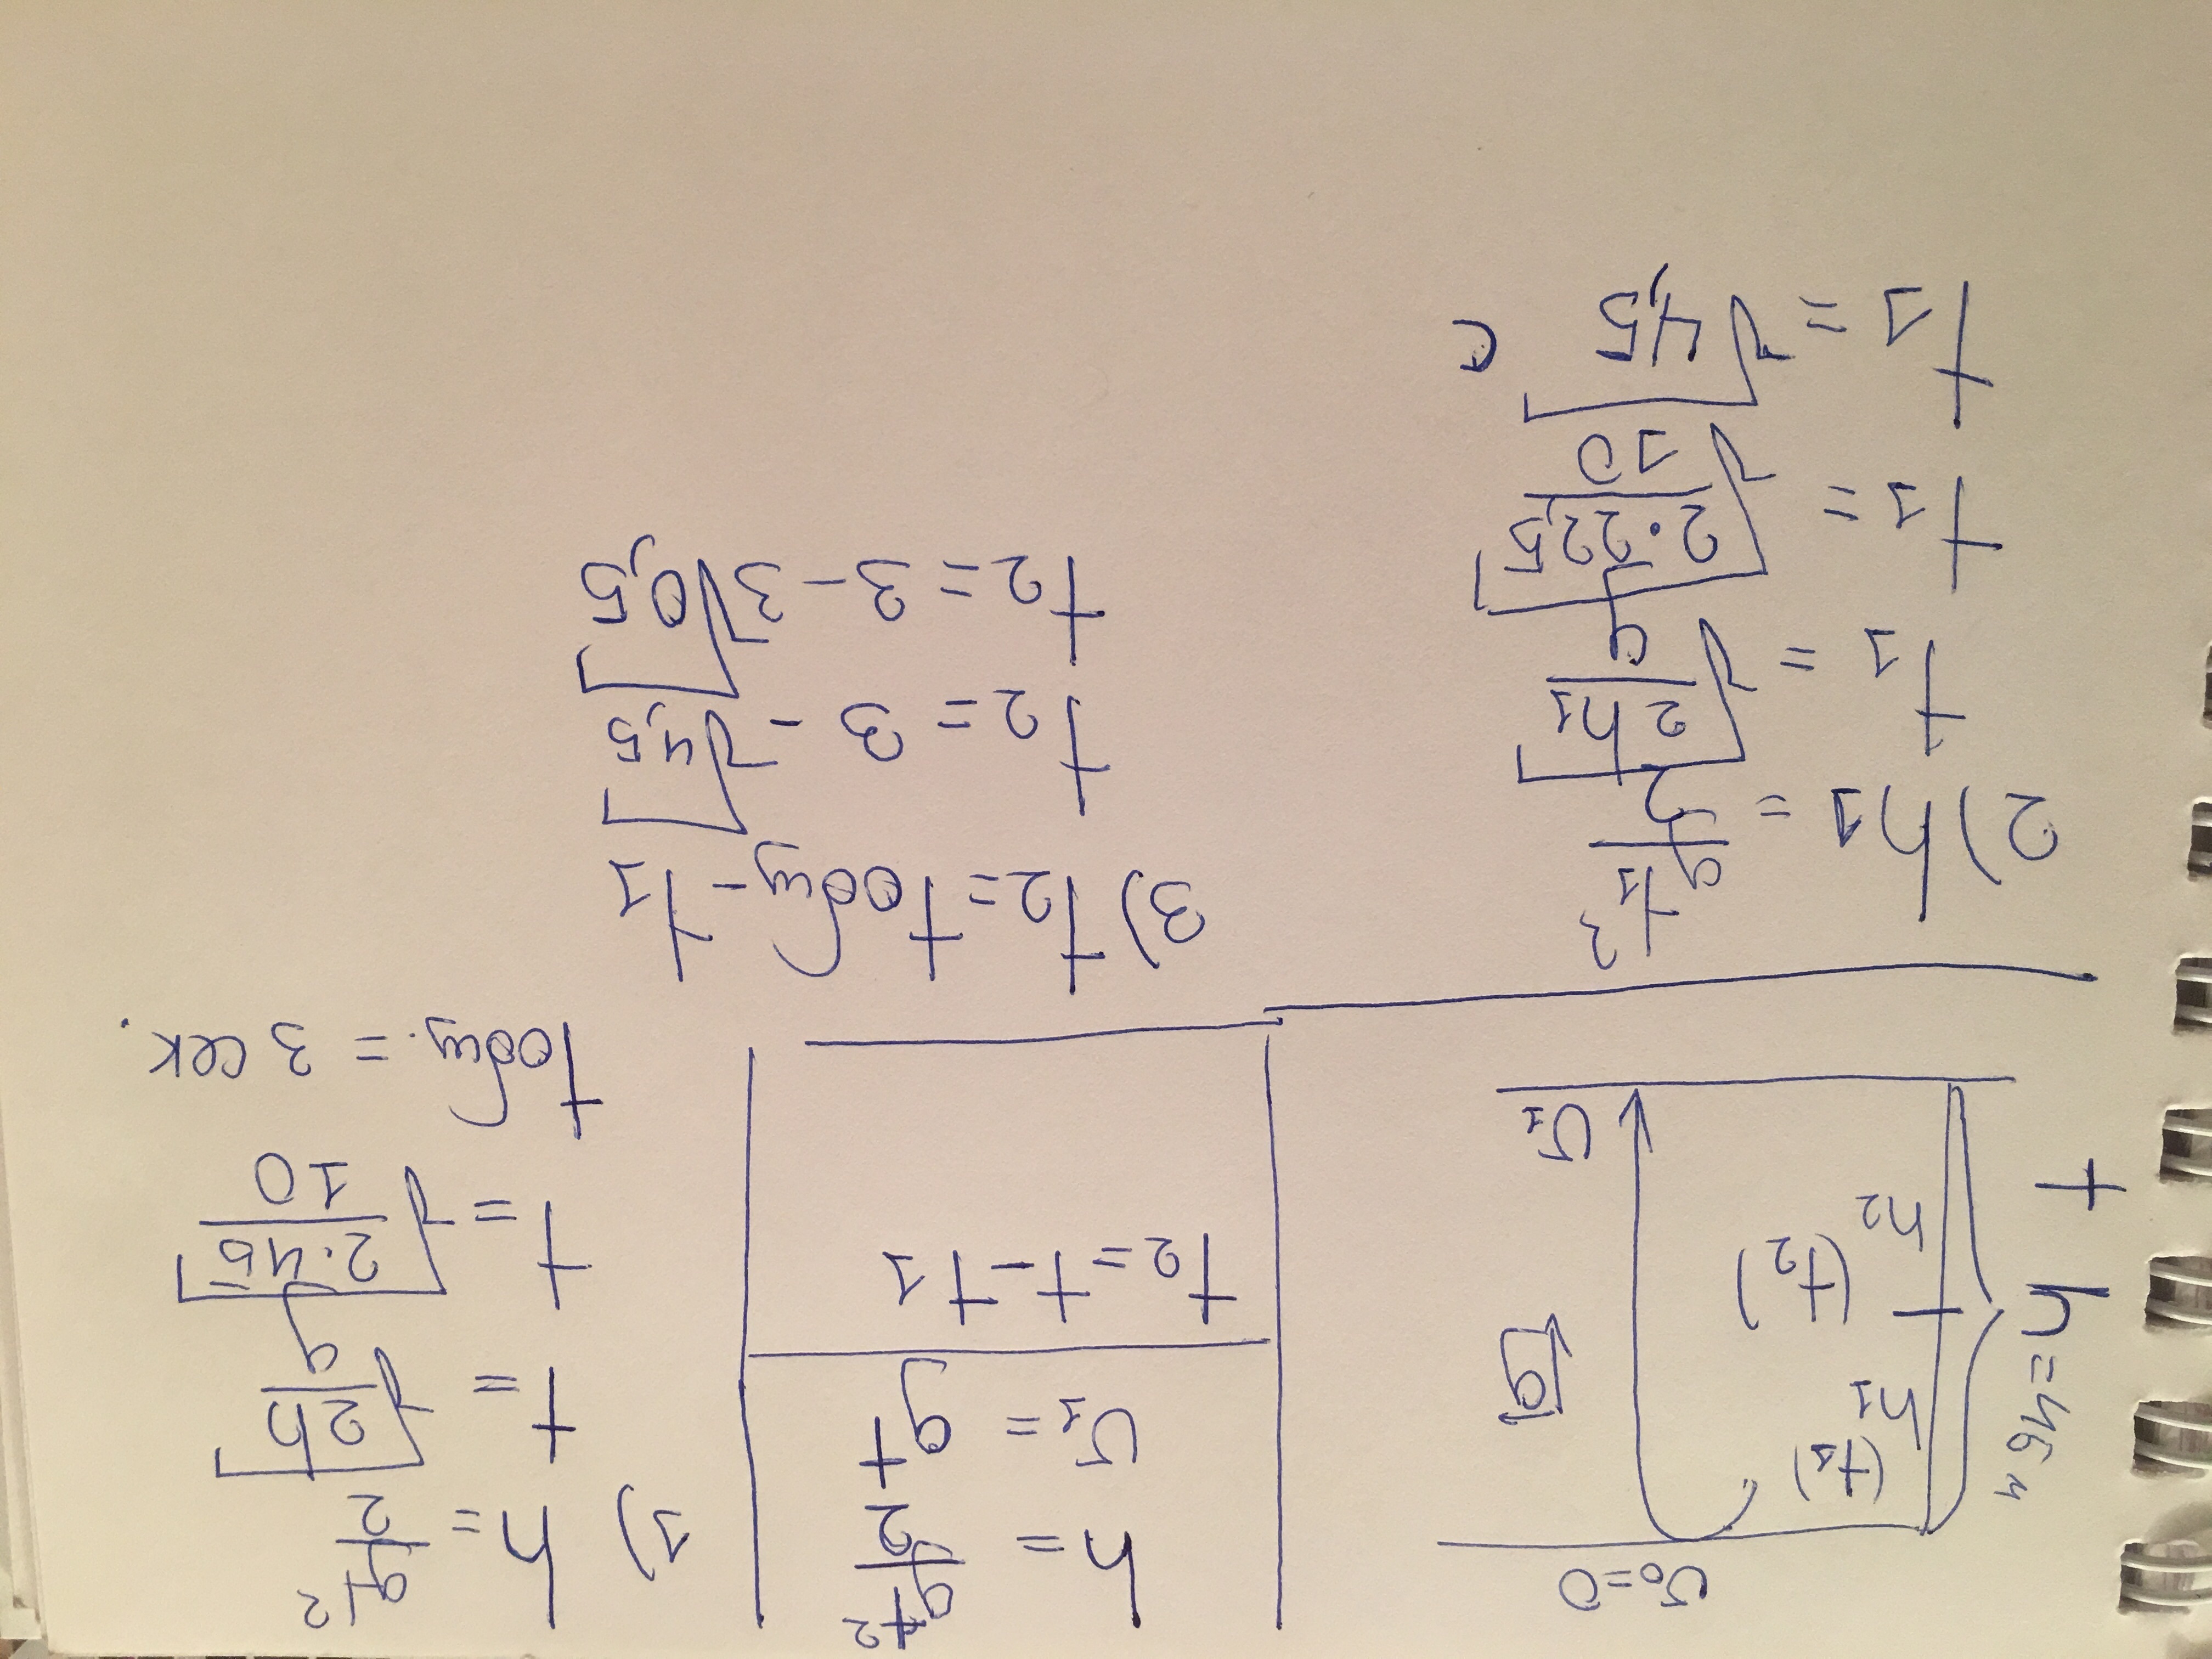 v₀=0
(t₁)
h₁
h=45 м
g
(t₂)
h₂
t
v₁
h = gt²/2
v₁ = gt
t₂ = t - t₁
1) h = gt²/2
t = √(2h/g)
t = √(2·45/10)
tобщ. = 3 сек.
2) h₁ = gt₁²/2
t₁ = √(2h₁/g)
t₁ = √(2·22,5/10)
t₁ = √4,5 с
3) t₂ = tобщ - t₁
t₂ = 3 - √4,5
t₂ = 3 - 3√0,5